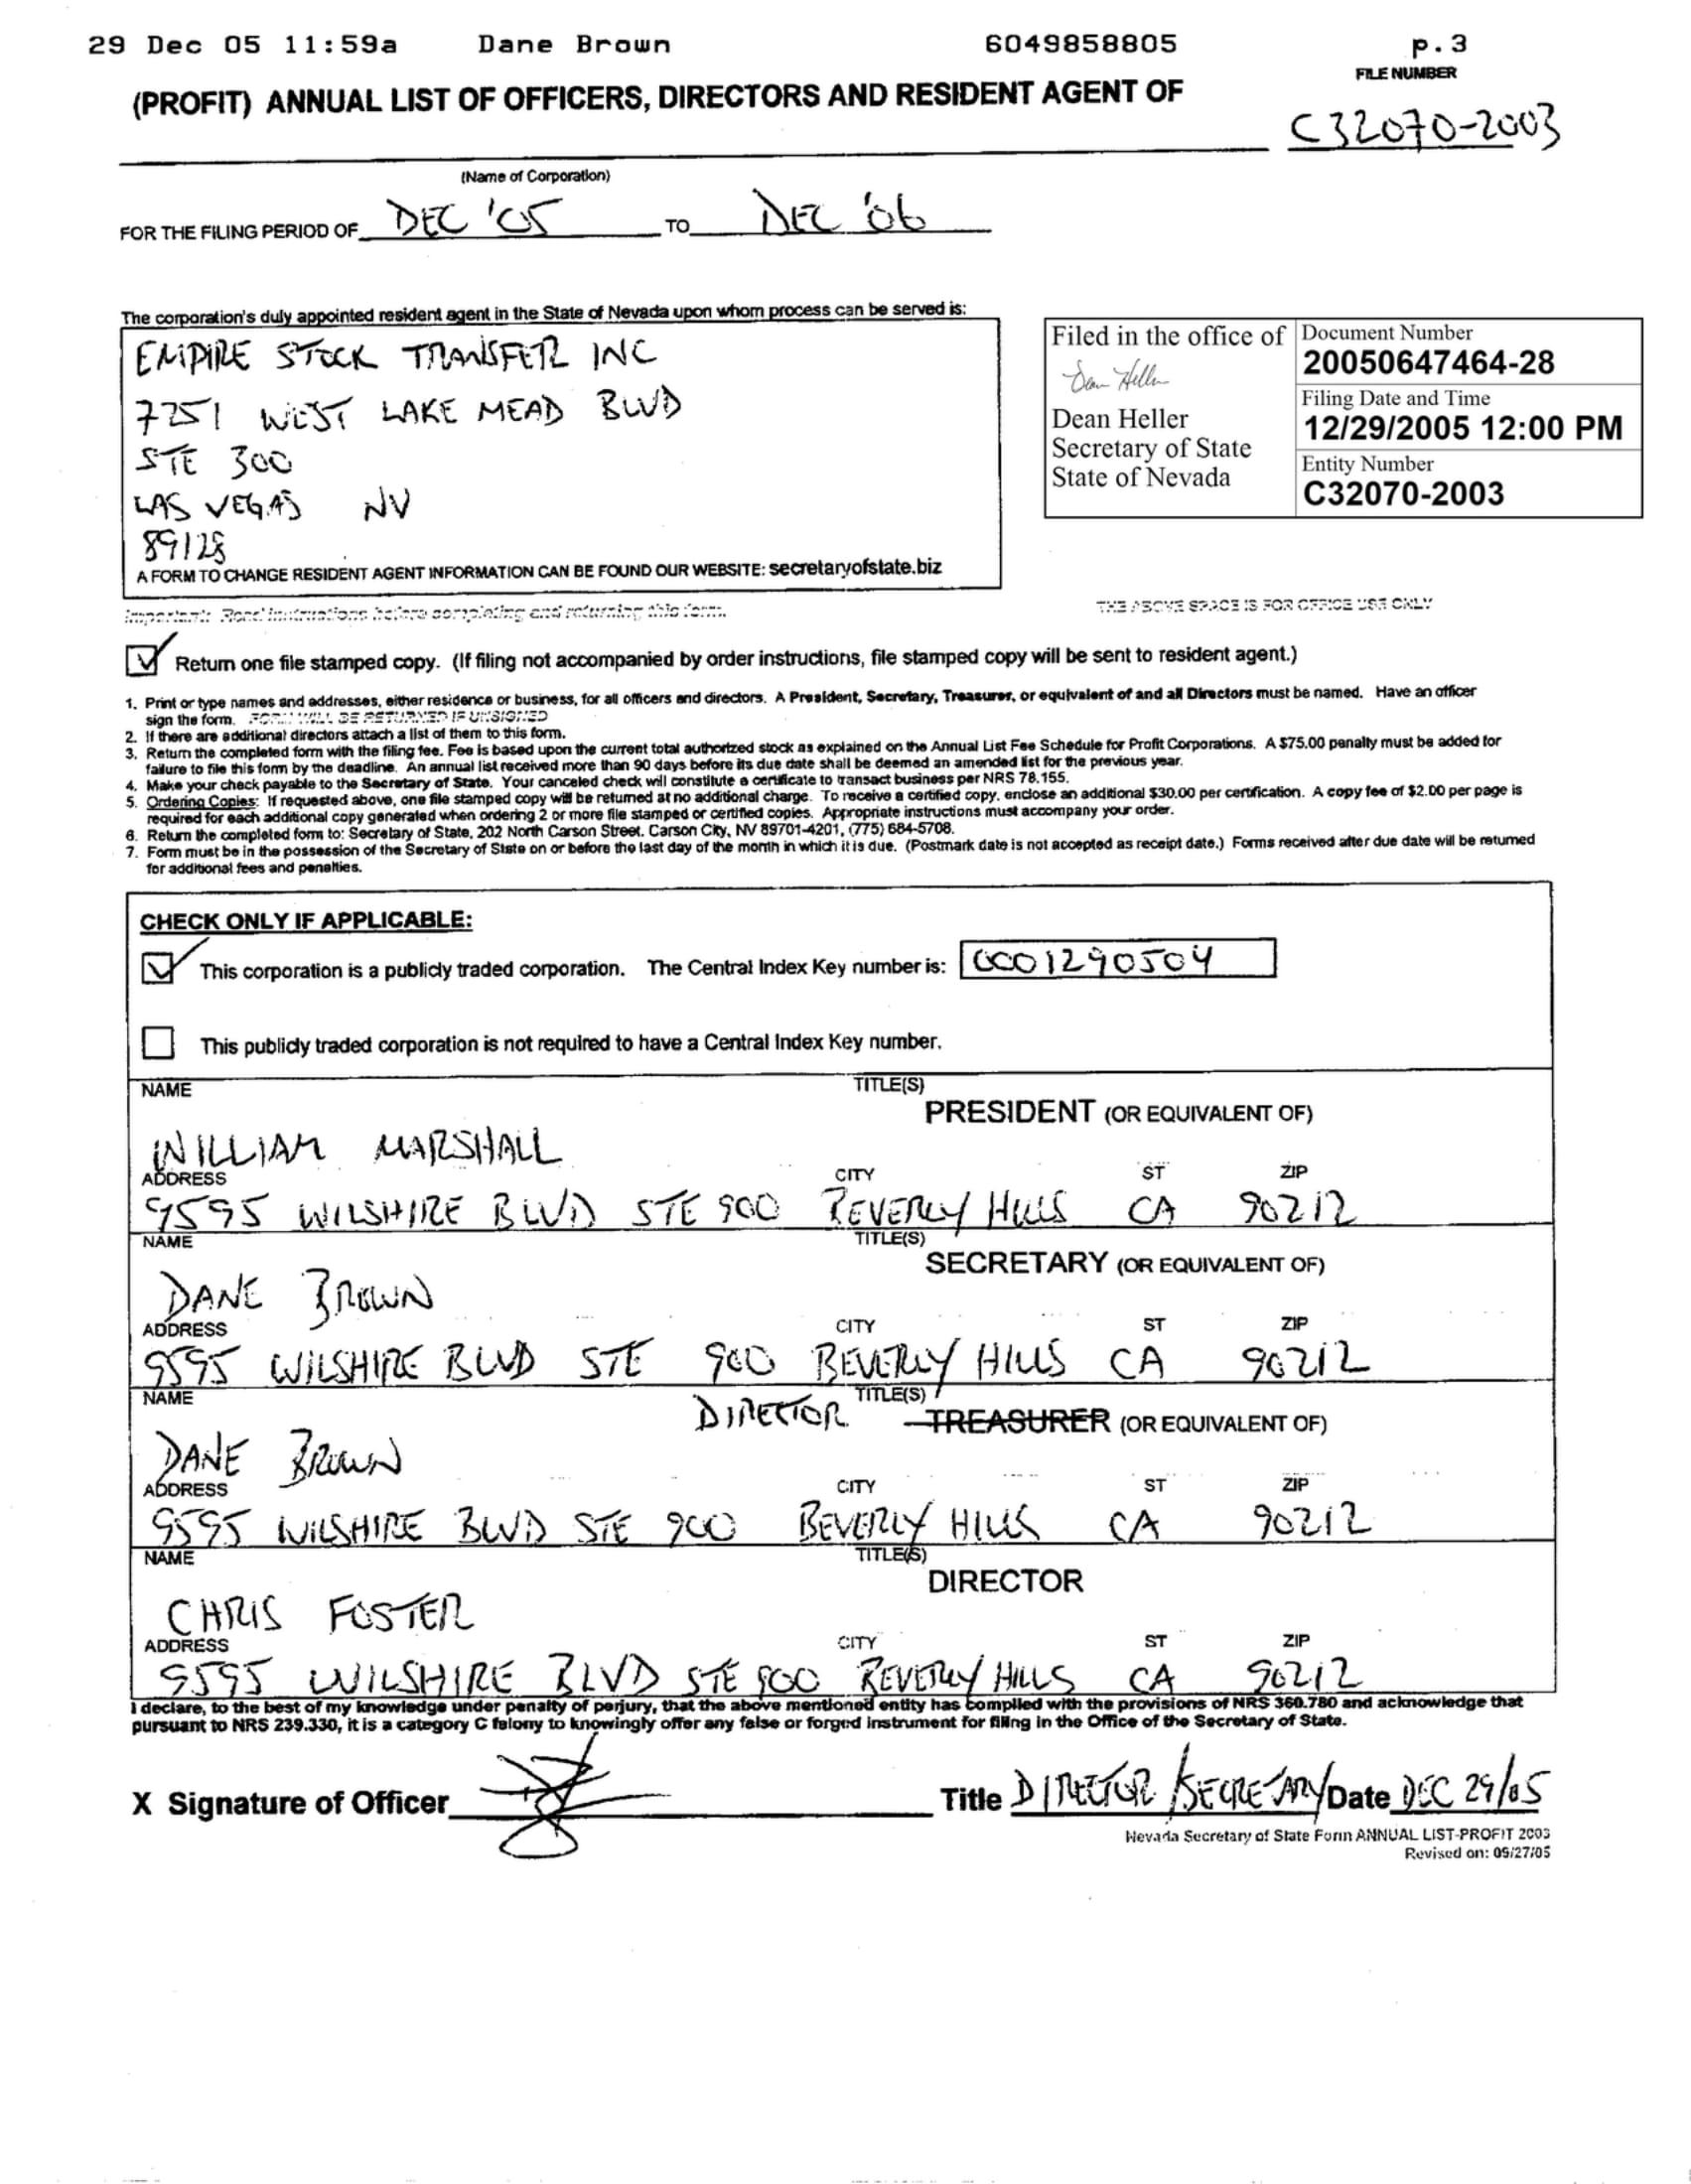 29 Dec 05 11:59a Dane Brown 6049858805 p.3
FILE NUMBER
(PROFIT) ANNUAL LIST OF OFFICERS, DIRECTORS AND RESIDENT AGENT OF
C32070-2003
(Name of Corporation)
FOR THE FILING PERIOD OF DEC '05 TO DEC '06
The corporation's duly appointed resident agent in the State of Nevada upon whom process can be served is:
EMPIRE STOCK TRANSFER INC
7251 WEST LAKE MEAD BLVD
STE 300
LAS VEGAS NV
89128
A FORM TO CHANGE RESIDENT AGENT INFORMATION CAN BE FOUND OUR WEBSITE: secretaryofstate.biz
Filed in the office of
Dean Heller
Dean Heller
Secretary of State
State of Nevada
Document Number
20050647464-28
Filing Date and Time
12/29/2005 12:00 PM
Entity Number
C32070-2003
Important: Read instructions before completing and returning this form.
THE ABOVE SPACE IS FOR OFFICE USE ONLY
Return one file stamped copy. (If filing not accompanied by order instructions, file stamped copy will be sent to resident agent.)
1. Print or type names and addresses, either residence or business, for all officers and directors. A President, Secretary, Treasurer, or equivalent of and all Directors must be named. Have an officer
sign the form. FORM WILL BE RETURNED IF UNSIGNED
2. If there are additional directors attach a list of them to this form.
3. Return the completed form with the filing fee. Fee is based upon the current total authorized stock as explained on the Annual List Fee Schedule for Profit Corporations. A $75.00 penalty must be added for
failure to file this form by the deadline. An annual list received more than 90 days before its due date shall be deemed an amended list for the previous year.
4. Make your check payable to the Secretary of State. Your canceled check will constitute a certificate to transact business per NRS 78.155.
5. Ordering Copies: If requested above, one file stamped copy will be returned at no additional charge. To receive a certified copy, enclose an additional $30.00 per certification. A copy fee of $2.00 per page is
required for each additional copy generated when ordering 2 or more file stamped or certified copies. Appropriate instructions must accompany your order.
6. Return the completed form to: Secretary of State, 202 North Carson Street, Carson City, NV 89701-4201, (775) 684-5708.
7. Form must be in the possession of the Secretary of State on or before the last day of the month in which it is due. (Postmark date is not accepted as receipt date.) Forms received after due date will be returned
for additional fees and penalties.
CHECK ONLY IF APPLICABLE:
This corporation is a publicly traded corporation. The Central Index Key number is: 0001290504
This publicly traded corporation is not required to have a Central Index Key number.
NAME TITLE(S)
PRESIDENT (OR EQUIVALENT OF)
WILLIAM MARSHALL
ADDRESS CITY ST ZIP
9595 WILSHIRE BLVD STE 900 BEVERLY HILLS CA 90212
NAME TITLE(S)
SECRETARY (OR EQUIVALENT OF)
DANE BROWN
ADDRESS CITY ST ZIP
9595 WILSHIRE BLVD STE 900 BEVERLY HILLS CA 90212
NAME TITLE(S)
DIRECTOR TREASURER (OR EQUIVALENT OF)
DANE BROWN
ADDRESS CITY ST ZIP
9595 WILSHIRE BLVD STE 900 BEVERLY HILLS CA 90212
NAME TITLE(S)
DIRECTOR
CHRIS FOSTER
ADDRESS CITY ST ZIP
9595 WILSHIRE BLVD STE 900 BEVERLY HILLS CA 90212
I declare, to the best of my knowledge under penalty of perjury, that the above mentioned entity has complied with the provisions of NRS 360.780 and acknowledge that
pursuant to NRS 239.330, it is a category C felony to knowingly offer any false or forged instrument for filing in the Office of the Secretary of State.
X Signature of Officer Title DIRECTOR/SECRETARY Date DEC 29/05
Nevada Secretary of State Form ANNUAL LIST-PROFIT 2003
Revised on: 09/27/05